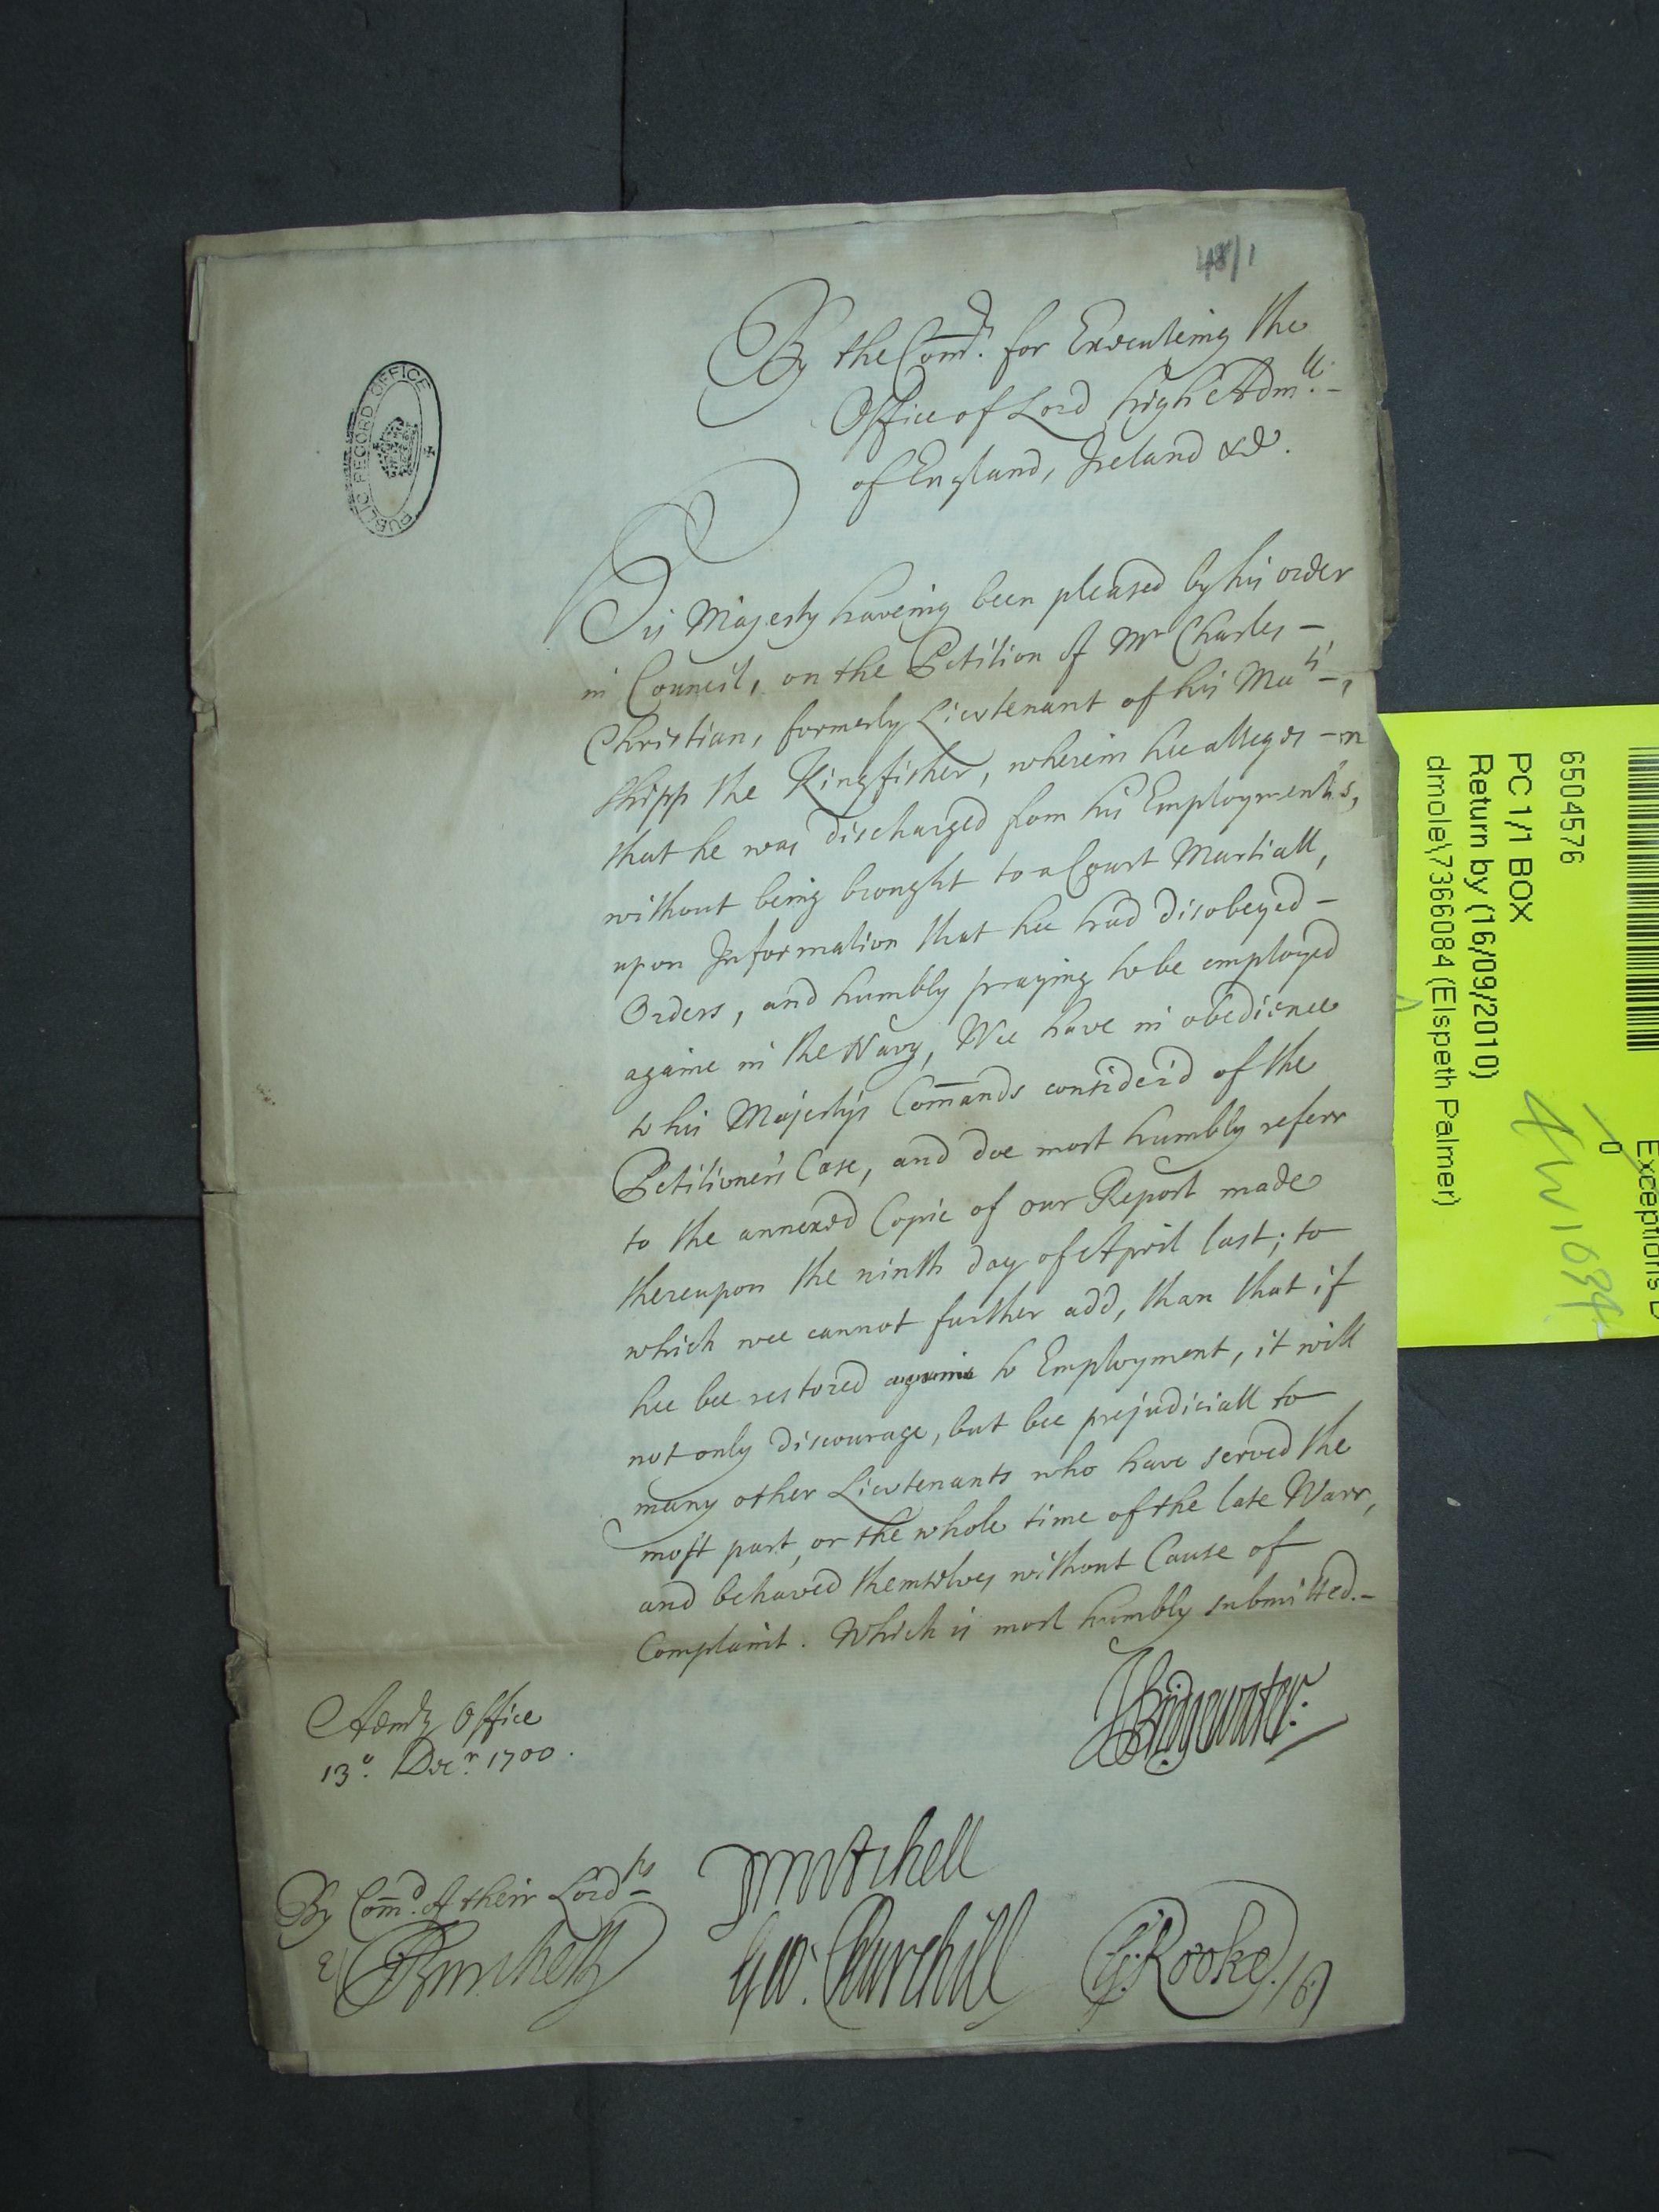 48/1
PUBLIC RECORD OFFICE
By the Com̅rs. for Executeing the
Office of Lord high Adm:ll -
of England, Ireland &c.
His Majesty haveing been pleased by his order
in Council, on the Petition of Mr Charles -
Christian, formerly Lieutenant of his Mats -
Shipp the Kingfisher, wherein hee alleges -
that he was discharged from his Employments,
without being brought to a Court Martiall,
upon Information that hee had disobeyed -
Orders, and humbly praying to be employed
againe in the Navy, Wee have in obedience
to his Majestys Com̅ands consider'd of the
Petitioner's Case, and doe most humbly referr
to the annexed Copie of our Report made
thereupon the ninth day of April last; to
which wee cannot further add, than that if
hee bee restored againe to Employment, it will
not only discourage, but bee prejudiciall to
many other Lieutenants who have served the
most part, or the whole time of the late Warr,
and behaved themselves without Cause of
Complaint. Which is most humbly submitted. -
Admty Office
13o. Decr. 1700.
JBridgewater.
DMitchell
By Com̅d. of their Lordps
JBurchett
Geo: Churchill
G: Rooke
6504576
PC 1/1 BOX
Return by (16/09/2010)
dmole\7366084 (Elspeth Palmer)
0